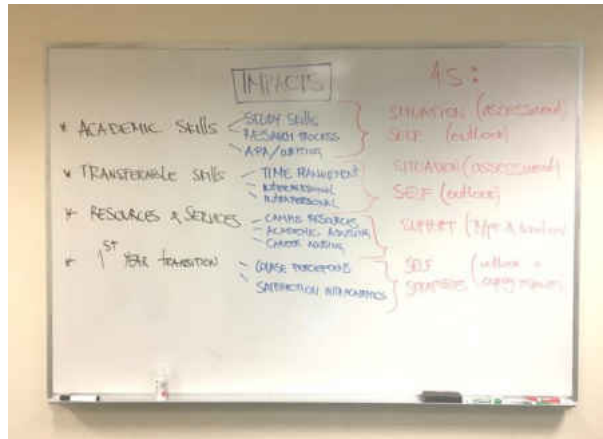 IMPACTS
4S:
* ACADEMIC SKILLS
- STUDY SKILLS
- RESEARCH PROCESS
- APA/WRITING
SITUATION (assessment)
SELF (outlook)
* TRANSFERABLE SKILLS
- TIME MANAGEMENT
- INTERPERSONAL
- INTRAPERSONAL
SITUATION (assessment)
SELF (outlook)
* RESOURCES & SERVICES
- CAMPUS RESOURCES
- ACADEMIC ADVISING
- CAREER ADVISING
SUPPORT (Type &
* 1ST YEAR TRANSITION
- COURSE PERCEPTIONS
- SATISFACTION
SELF (outlook
STRATEGIES